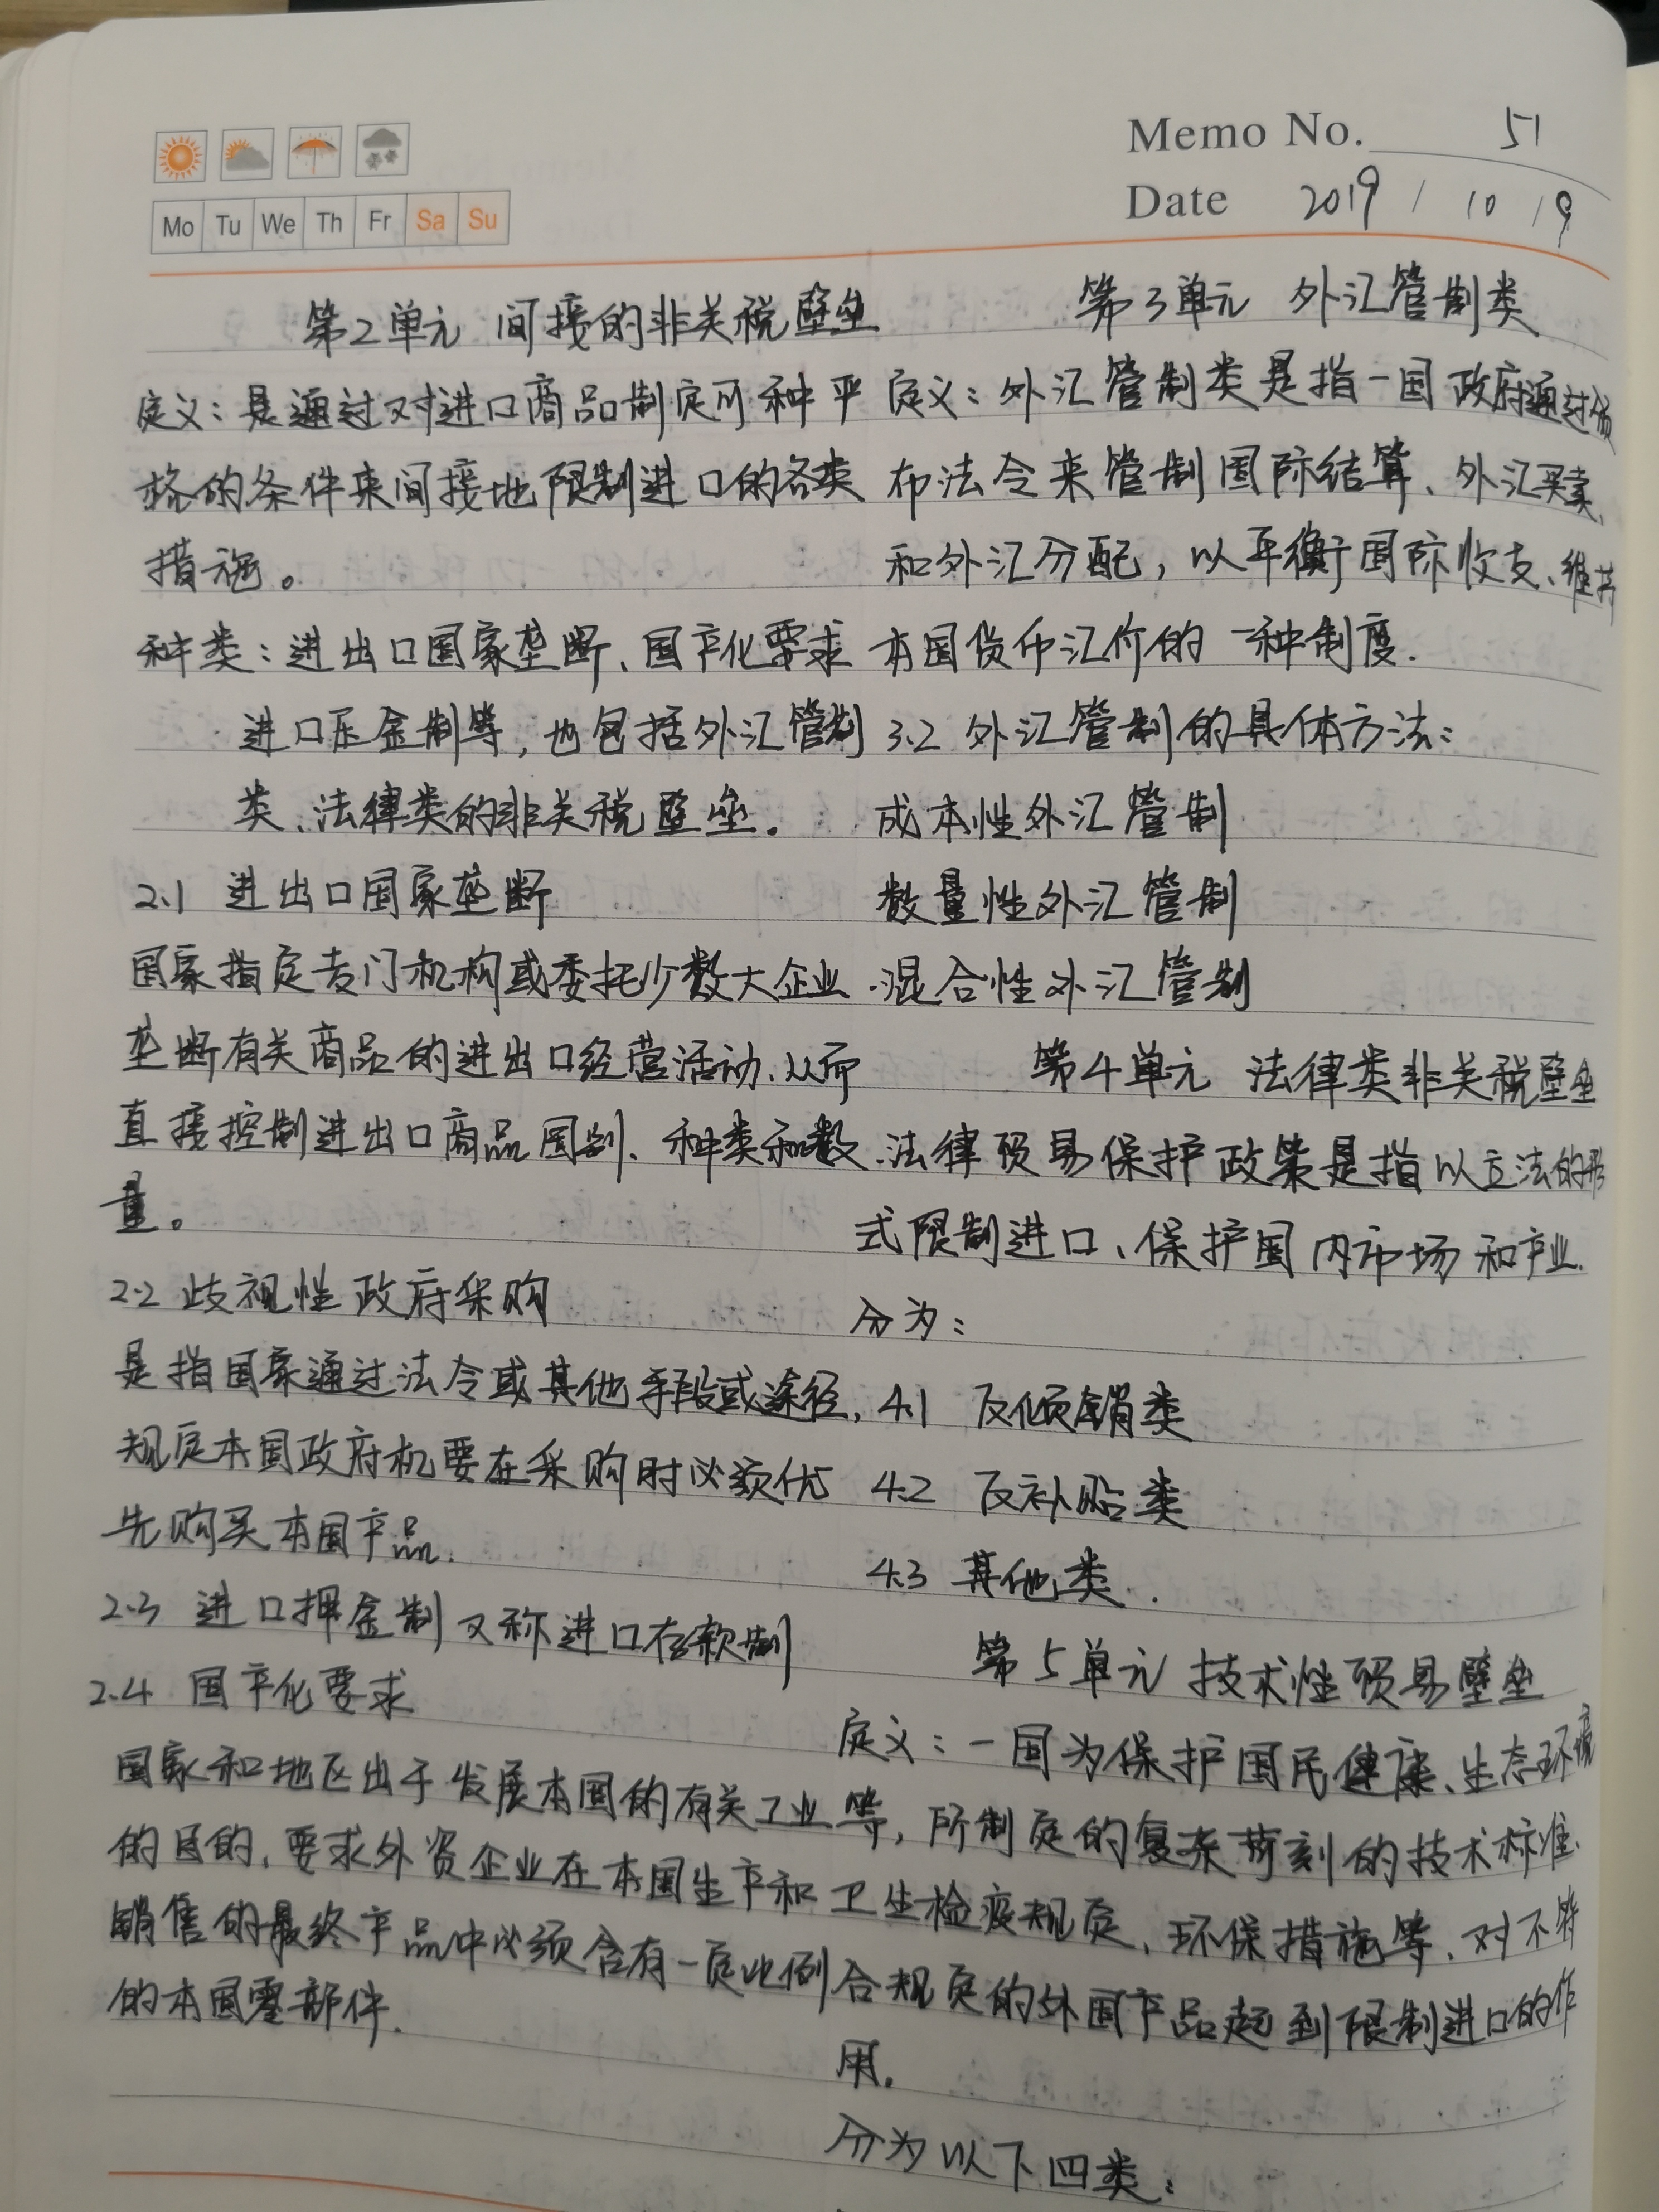 Memo No. 51
Mo Tu We Th Fr Sa Su
Date 2019 / 10 / 9
第2单元 间接的非关税壁垒
定义：是通过对进口商品制定 种严
格的条件来间接地限制进口的各类
措施。
种类：进出口国家垄断、国产化要求
进口压金制等，也包括外汇管制
类、法律类的非关税壁垒.
2.1 进出口国家垄断
国家指定专门机构或委托少数大企业
垄断有关商品的进出口经营活动、从而
直接控制进出口商品国别、种类和数
量。
2.2 歧视性政府采购
是指国家通过法令或其他手段或途径，
规定本国政府机要在采购时必须优
先购买本国产品.
2.3 进口押金制 又称进口存款制
2.4 国产化要求
国家和地区出于发展本国的有关工业等，
的目的、要求外资企业在本国生产和
销售的最终产品中必须含有一定比例
的本国零部件.
第3单元 外汇管制类
定义：外汇管制类是指一国政府通过颁
布法令来管制国际结算、外汇买卖、
和外汇分配，以平衡于国际收支、维持
本国货币汇价的一种制度.
3.2 外汇管制的具体方法：
成本性外汇管制
数量性外汇管制
混合性外汇管制
第4单元 法律类非关税壁垒
法律贸易保护政策是指以立法的形
式限制进口、保护国内市场和产业.
分为：
4.1 反倾销类
4.2 反补贴类
4.3 其他类.
第5单元 技术性贸易壁垒
定义：一国为保护国民健康、生态环境
所制定的复杂苛刻的技术标准、
卫生检疫规定、环保措施等、对不符
合规定的外国产品起到限制进口的作
用.
分为以下四类：